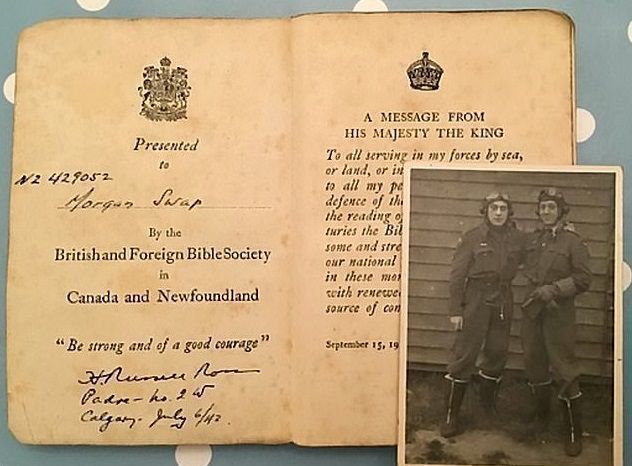 Presented
to
NZ 429052
Morgan Swap
By the
British and Foreign Bible Society
in
Canada and Newfoundland
"Be strong and of a good courage"
H. Russell Ross
Padre - No. 2 W
Calgary - July 6/42.
A MESSAGE FROM
HIS MAJESTY THE KING
To all serving in my forces by sea,
or land, or in
to all my pe
defence of th
the reading o
turies the Bib
some and stre
our national
in these mo
with renewe
source of con
September 15, 19